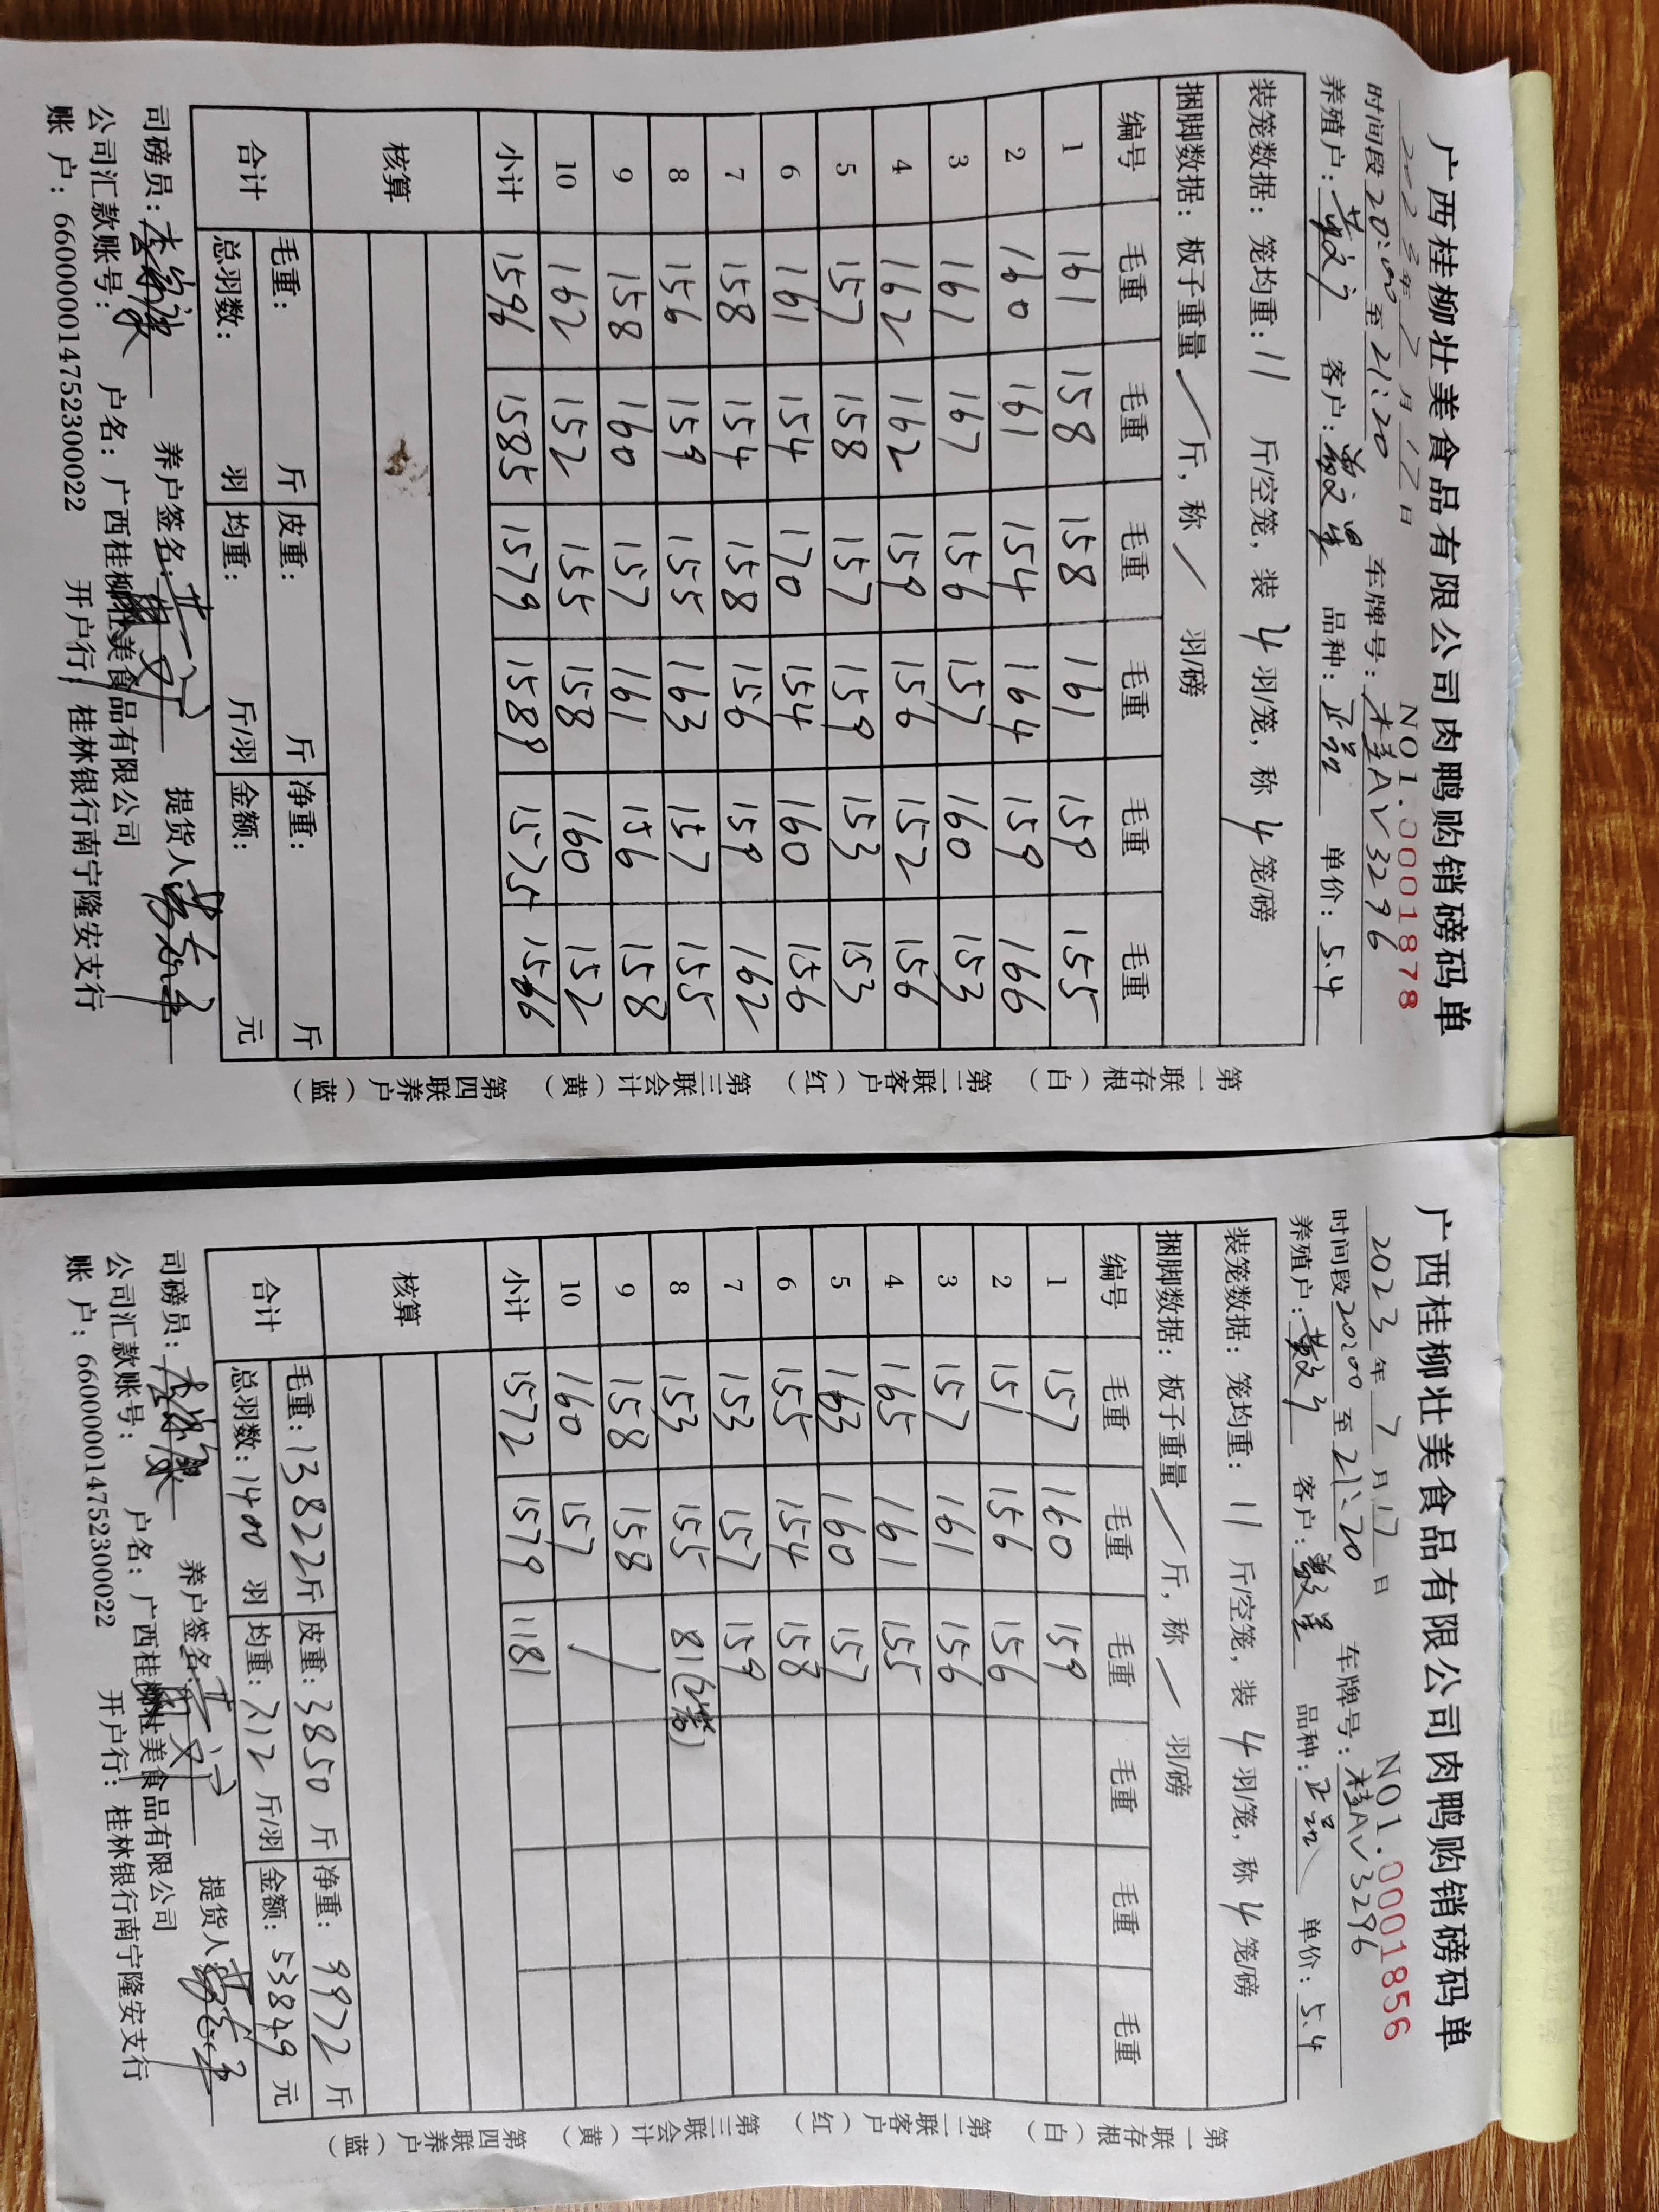 广西桂柳壮美食品有限公司肉鸭购销磅码单
2023年7月17日 NO1.0001878
时间段20:00至21:20 车牌号:桂AV3296
养殖户: 客户: 品种:正品 单价:5.4
装笼数据: 笼均重:11 斤/空笼, 装 4 羽/笼, 称 4 笼/磅
捆脚数据: 板子重量 / 斤, 称 / 羽/磅
编号 毛重 毛重 毛重 毛重 毛重 毛重
1 161 158 158 161 159 155
2 160 161 154 164 159 166
3 161 167 156 157 160 153
4 162 162 159 156 152 156
5 157 158 157 159 153 153
6 161 154 170 154 160 156
7 158 154 158 156 159 162
8 156 159 155 163 157 155
9 158 160 157 161 156 158
10 162 152 155 158 160 152
小计 1596 1585 1579 1589 1575 1566
核算
合计 毛重: 斤 皮重: 斤 净重: 斤
总羽数: 羽 均重: 斤/羽 金额: 元
司磅员: 养户签名: 提货人:
公司汇款账号: 户名:广西桂柳壮美食品有限公司
账 户:660000014752300022 开户行:桂林银行南宁隆安支行
第一联存根(白) 第二联客户(红) 第三联会计(黄) 第四联养户(蓝)
广西桂柳壮美食品有限公司肉鸭购销磅码单
2023年7月17日 NO1.0001856
时间段20:00至21:20 车牌号:桂AV3296
养殖户: 客户: 品种:正品 单价:5.4
装笼数据: 笼均重: 11 斤/空笼, 装 4 羽/笼, 称 4 笼/磅
捆脚数据: 板子重量 / 斤, 称 / 羽/磅
编号 毛重 毛重 毛重 毛重 毛重 毛重
1 157 160 159
2 151 156 156
3 157 161 156
4 165 161 155
5 163 160 157
6 155 154 158
7 153 157 159
8 153 155 81(2笼)
9 158 158 /
10 160 157 /
小计 1572 1579 1181
核算
合计 毛重:13822斤 皮重:3850斤 净重:9972斤
总羽数:1400 羽 均重:7.12 斤/羽 金额:53849元
司磅员: 养户签名: 提货人:
公司汇款账号: 户名:广西桂柳壮美食品有限公司
账 户:660000014752300022 开户行:桂林银行南宁隆安支行
第一联存根(白) 第二联客户(红) 第三联会计(黄) 第四联养户(蓝)